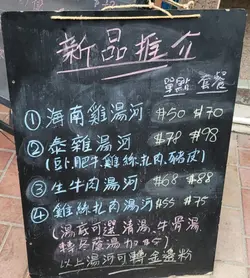 新品推介
單點 套餐
①海南雞湯河 $50 $70
②泰雜湯河 $78 $98
(卜肥牛、雞絲、扎肉、豬皮)
③生牛肉湯河 $68 $88
④雞絲扎肉湯河 $55 $75
(湯底可選清湯、牛骨湯
轉 湯加
以上湯河可轉金邊粉